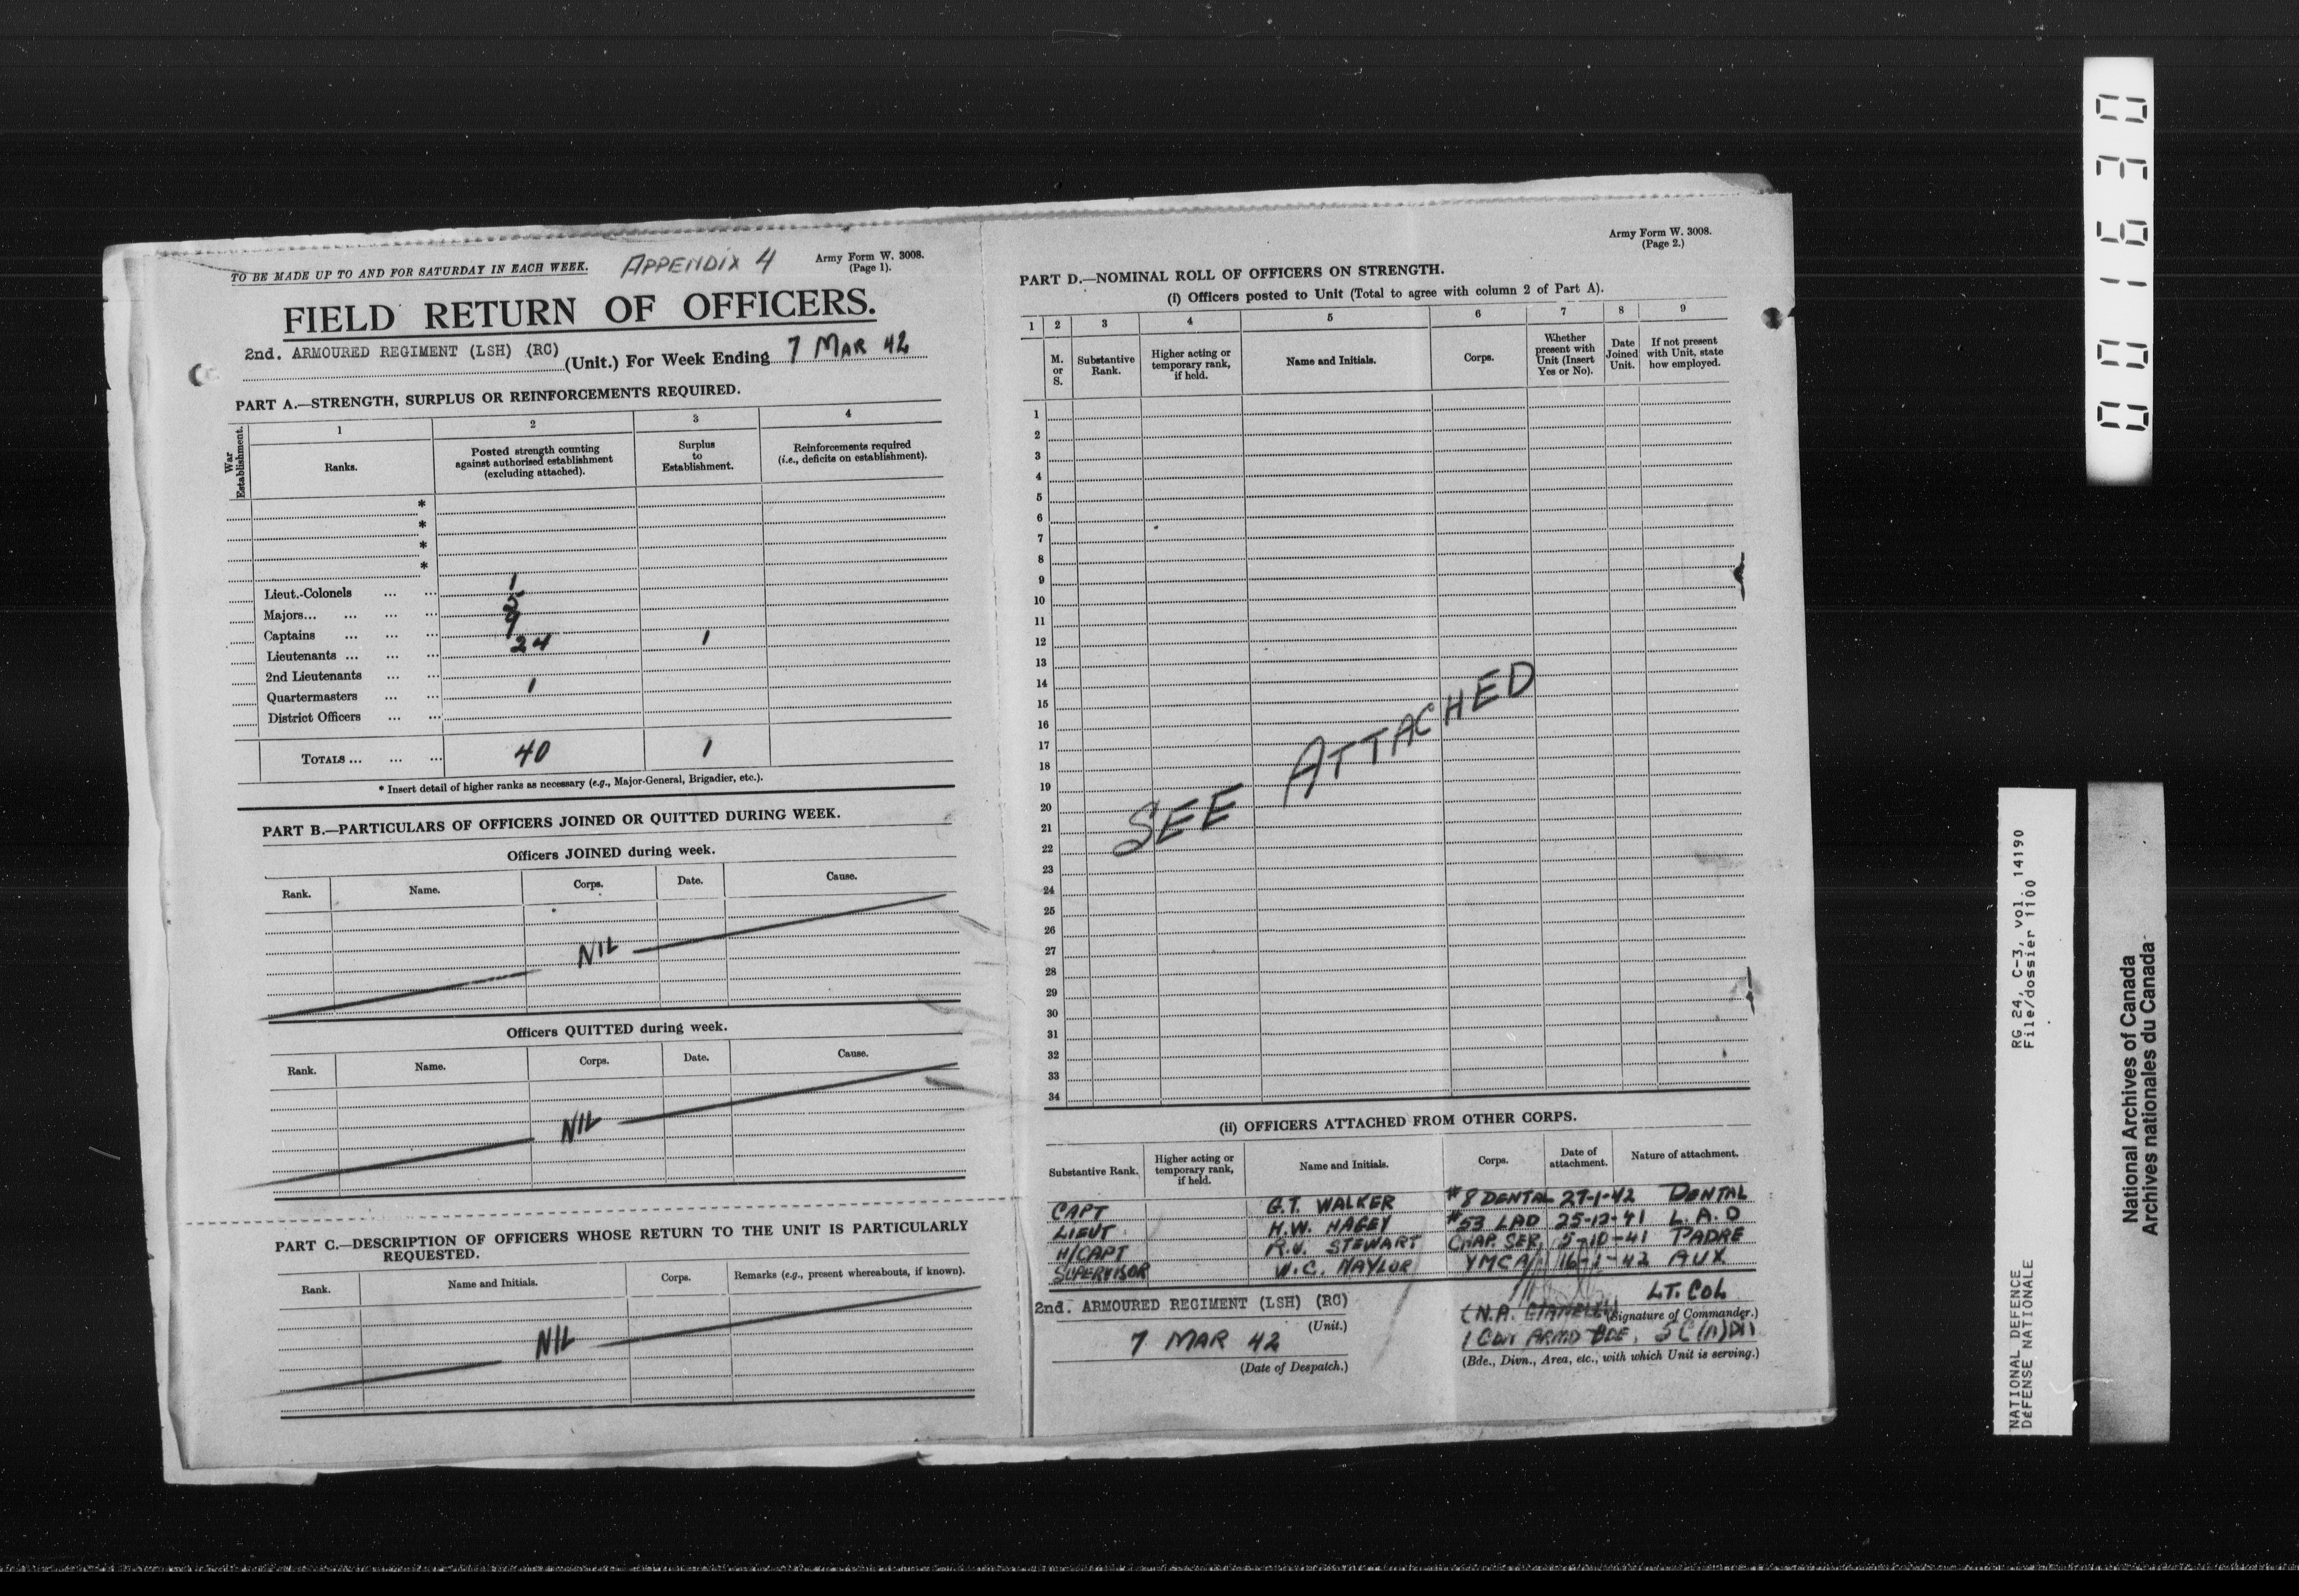 TO BE MADE UP TO AND FOR SATURDAY IN EACH WEEK.
APPENDIX 4
Army Form W. 3008.
(Page 1).
FIELD RETURN OF OFFICERS.
2nd. ARMOURED REGIMENT (LSH) (RC) (Unit.) For Week Ending 7 MAR 42
PART A.—STRENGTH, SURPLUS OR REINFORCEMENTS REQUIRED.
War Establishment.
1 2 3 4
Ranks.
Posted strength counting against authorised establishment (excluding attached).
Surplus to Establishment.
Reinforcements required (i.e., deficits on establishment).
*
*
*
*
Lieut.-Colonels ... ... 1
Majors... ... ... ... 5
Captains ... ... ... 9
Lieutenants ... ... ... 24 1
2nd Lieutenants ... ...
Quartermasters ... ... 1
District Officers ... ...
TOTALS ... ... ... 40 1
* Insert detail of higher ranks as necessary (e.g., Major-General, Brigadier, etc.).
PART B.—PARTICULARS OF OFFICERS JOINED OR QUITTED DURING WEEK.
Officers JOINED during week.
Rank. Name. Corps. Date. Cause.
NIL
Officers QUITTED during week.
Rank. Name. Corps. Date. Cause.
NIL
PART C.—DESCRIPTION OF OFFICERS WHOSE RETURN TO THE UNIT IS PARTICULARLY
REQUESTED.
Rank. Name and Initials. Corps. Remarks (e.g., present whereabouts, if known).
NIL
Army Form W. 3008.
(Page 2.)
PART D.—NOMINAL ROLL OF OFFICERS ON STRENGTH.
(i) Officers posted to Unit (Total to agree with column 2 of Part A).
1 2 3 4 5 6 7 8 9
M. or S.
Substantive Rank.
Higher acting or temporary rank, if held.
Name and Initials.
Corps.
Whether present with Unit (Insert Yes or No).
Date Joined Unit.
If not present with Unit, state how employed.
1
2
3
4
5
6
7
8
9
10
11
12
13
14
15
16
17
18
19
20
21
22
23
24
25
26
27
28
29
30
31
32
33
34
SEE ATTACHED
(ii) OFFICERS ATTACHED FROM OTHER CORPS.
Substantive Rank.
Higher acting or temporary rank, if held.
Name and Initials.
Corps.
Date of attachment.
Nature of attachment.
CAPT G.T. WALKER #8 DENTAL 27-1-42 DENTAL
LIEUT H.W. HAGEY #53 LAD 25-12-41 L.A.D
H/CAPT R.V. STEWART CHAP. SER. 5-10-41 PADRE
SUPERVISOR W.C. NAYLOR YMCA 16-1-42 AUX
2nd. ARMOURED REGIMENT (LSH) (RC)
(Unit.)
7 MAR 42
(Date of Despatch.)
LT. COL
(N.A. (Signature of Commander.)
1 Cdn ARMD BDE, 5 C (A) Div
(Bde., Divn., Area, etc., with which Unit is serving.)
001630
RG 24, C-3, vol. 14190
File/dossier 1100
NATIONAL DEFENCE
DÉFENSE NATIONALE
National Archives of Canada
Archives nationales du Canada